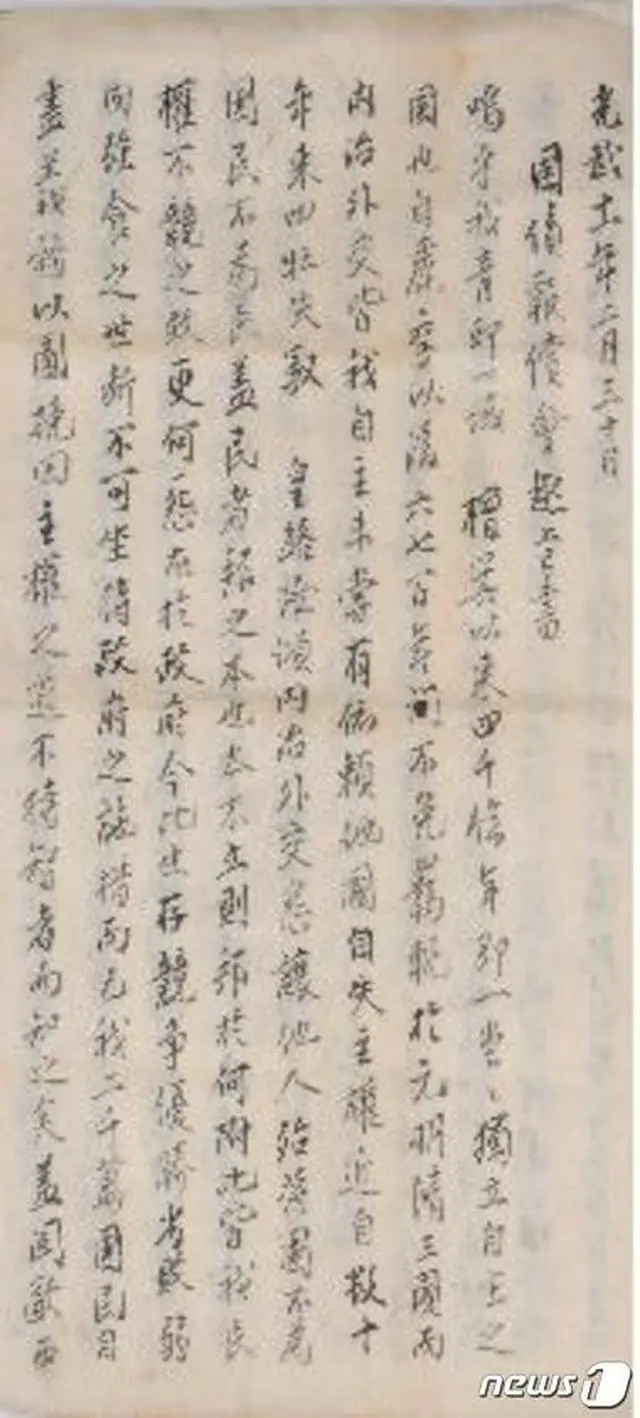 光武十一年二月三十日
国債報償會趣旨書
嗚乎我青邱一域 檀箕以來四千餘年即一堂々獨立自主之
国也自麗季以後六七百年間不免羈軛於元明清三國而
内治外交皆我自主未嘗有依賴他國自失主權近自數十
年來四壯失敦 皇路險傾内治外交悉讓他人殆落國不爲
国民不爲民盖民者邦之本也本不立則邦於何附此皆我民
權不競之致更何怨尤於政府今此生存競爭優勝劣敗弱
肉强食之世斷不可坐待政府之施措而亡我二千萬國民同
盡 以國 因主權之 不待智者而知之矣盖国
news1